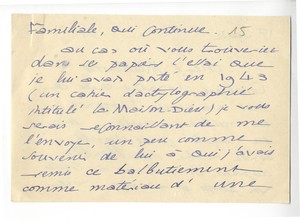 Familiale, qui continue. 15
au cas où vous trouveriez
dans ses papiers l'essai que
je lui avais prêté en 1943
(un cahier dactylographié
intitulé la Maison-Dieu) je vous
serais reconnaissant de me
l'envoyer, un peu comme
souvenir de lui à qui j'avais
remis ce balbutiement
comme matériau d'une